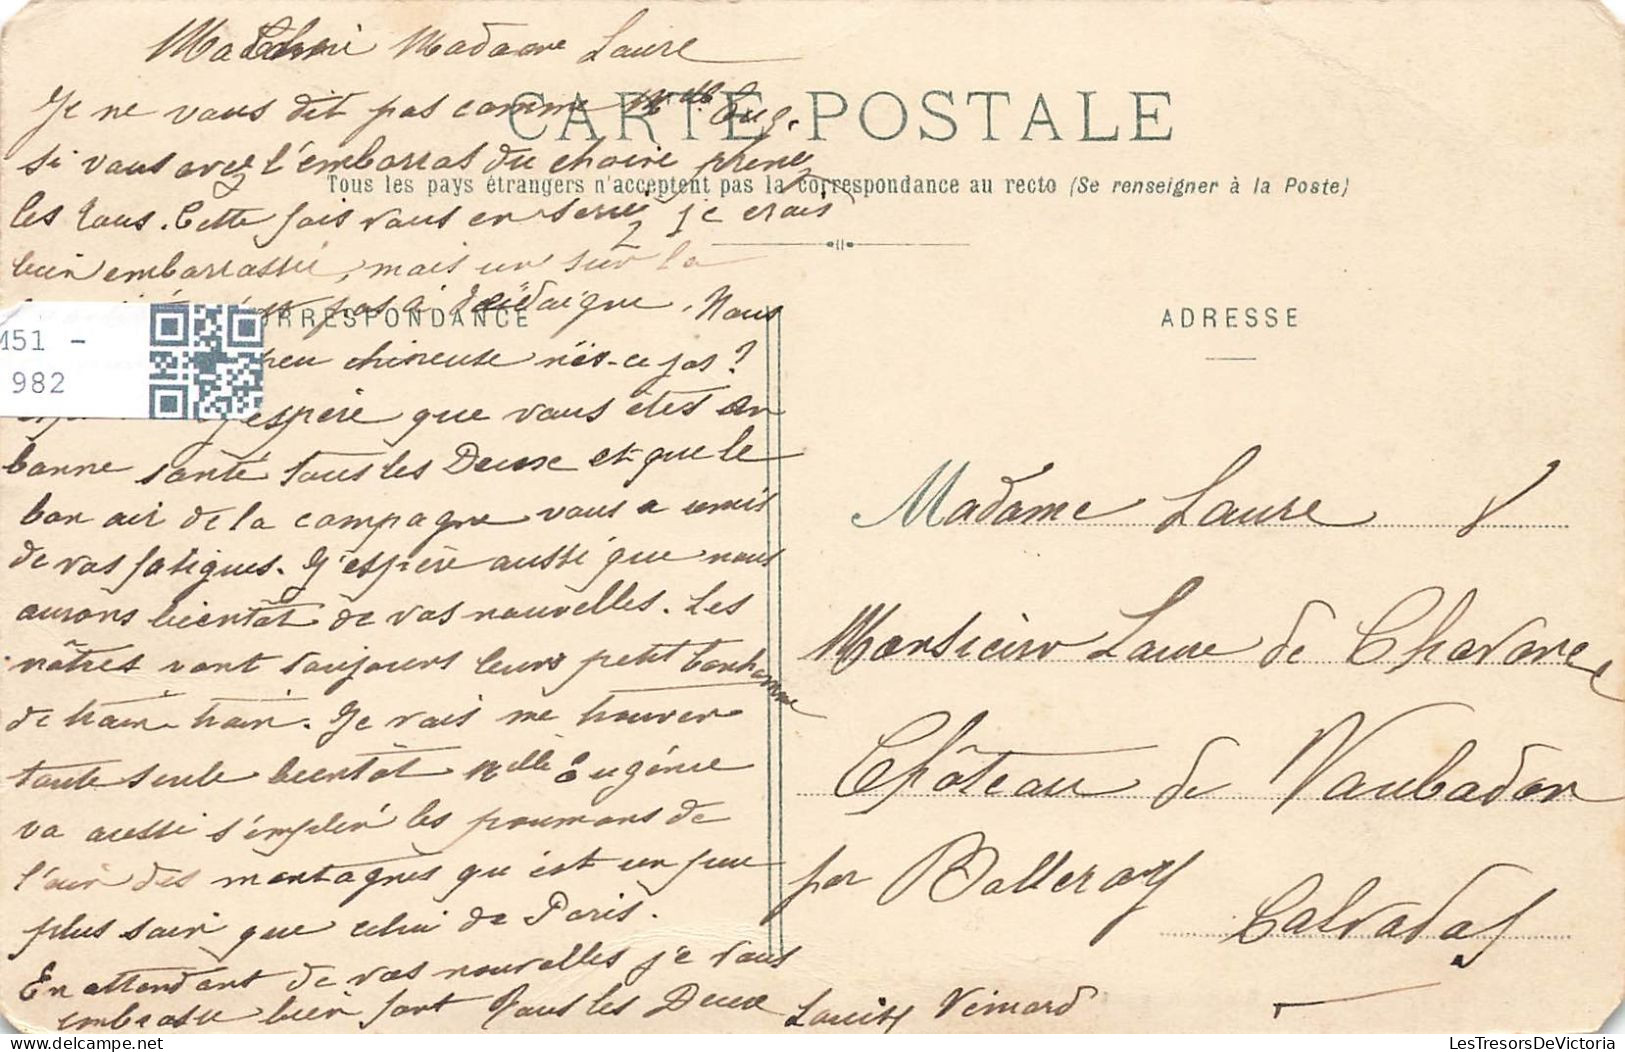 Madame Laure
Je ne vous dit pas comme Mlle Eug.
si vous avez l'embarras du choire prene
les tous. Cette fois vous en serie je crois
bien embarrassée, mais un sur la
pas à. Nous
peu chineuse n'es-ce pas?
j'espère que vous êtes en
bonne santé tous les Deux et que le
bon air de la campagne vous a remis
de vos fatigues. J'espère aussi que nous
aurons bientôt de vos nouvelles. Les
nôtres vont toujours leurs petit bonhomme
de train train. Je vais me trouver
toute seule bientôt Melle Eugénie
va aussi s'emplir les poumons de
l'air des montagnes qui est un peu
plus sain que celui de Paris.
En attendant de vos nouvelles je vous
embrasse bien fort tous les Deux Vimard
CARTE POSTALE
Tous les pays étrangers n'acceptent pas la correspondance au recto (Se renseigner à la Poste)
CORRESPONDANCE
ADRESSE
Madame Laure
Monsieur Laure de Chavane
Château de Vaubadon
par Balleroy
Calvados
M51 -
982
LesTresorsDeVictoria
LesTresorsDeVictoria.com